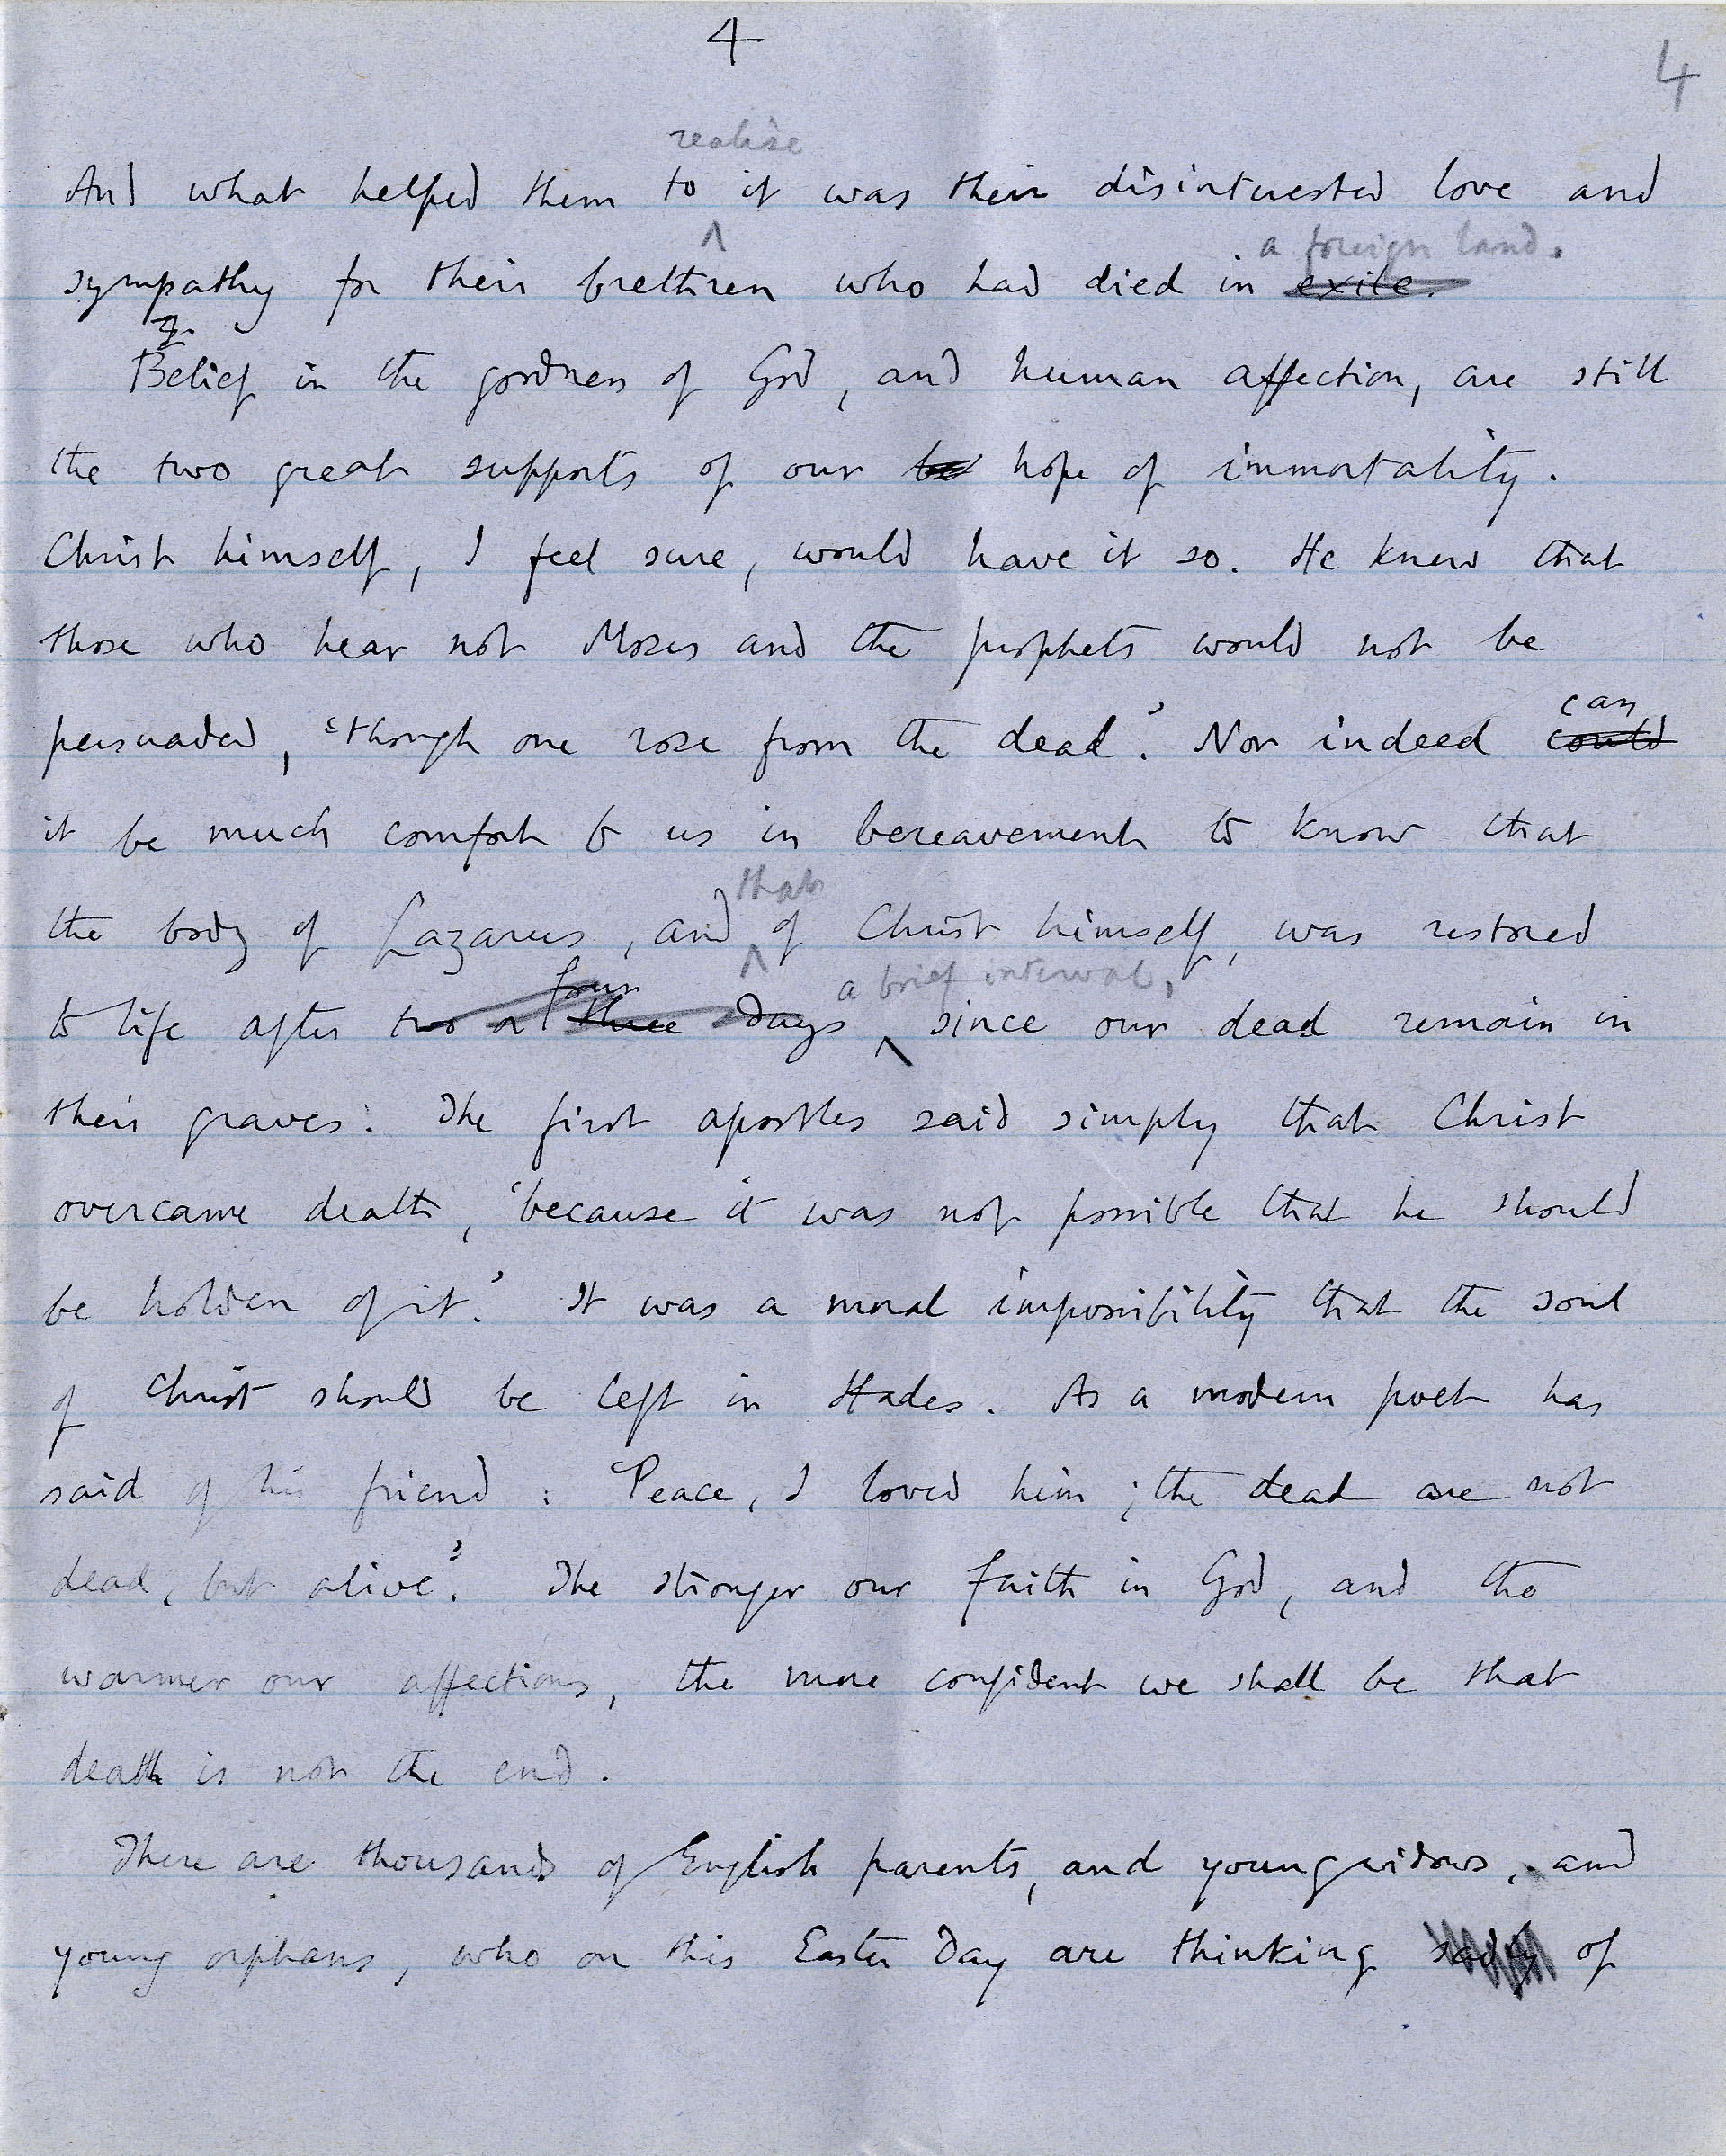 4
4
realise
And what helped them to it was their disinterested love and
a foreign land.
sympathy for their brethren who had died in exile.
2.
Belief in the goodness of God, and human affection, are still
the two great supports of our hope of immortality.
Christ himself, I feel sure, would have it so. He knew that
those who hear not Moses and the prophets would not be
can
persuaded, 'though one rose from the dead'. Nor indeed could
it be much comfort to us in bereavement to know that
that
the body of Lazarus, and of Christ himself, was restored
four a brief interval,
to life after two or three days, since our dead remain in
their graves. The first apostles said simply that Christ
overcame death, 'because it was not possible that he should
be holden of it.' It was a moral impossibility that the soul
of Christ should be left in Hades. As a modern poet has
said of his friend: 'Peace, I loved him; the dead are not
dead, but alive'. The stronger our faith in God, and the
warmer our affections, the more confident we shall be that
death is not the end.
There are thousands of English parents, and young widows, and
young orphans, who on this Easter Day are thinking sadly of